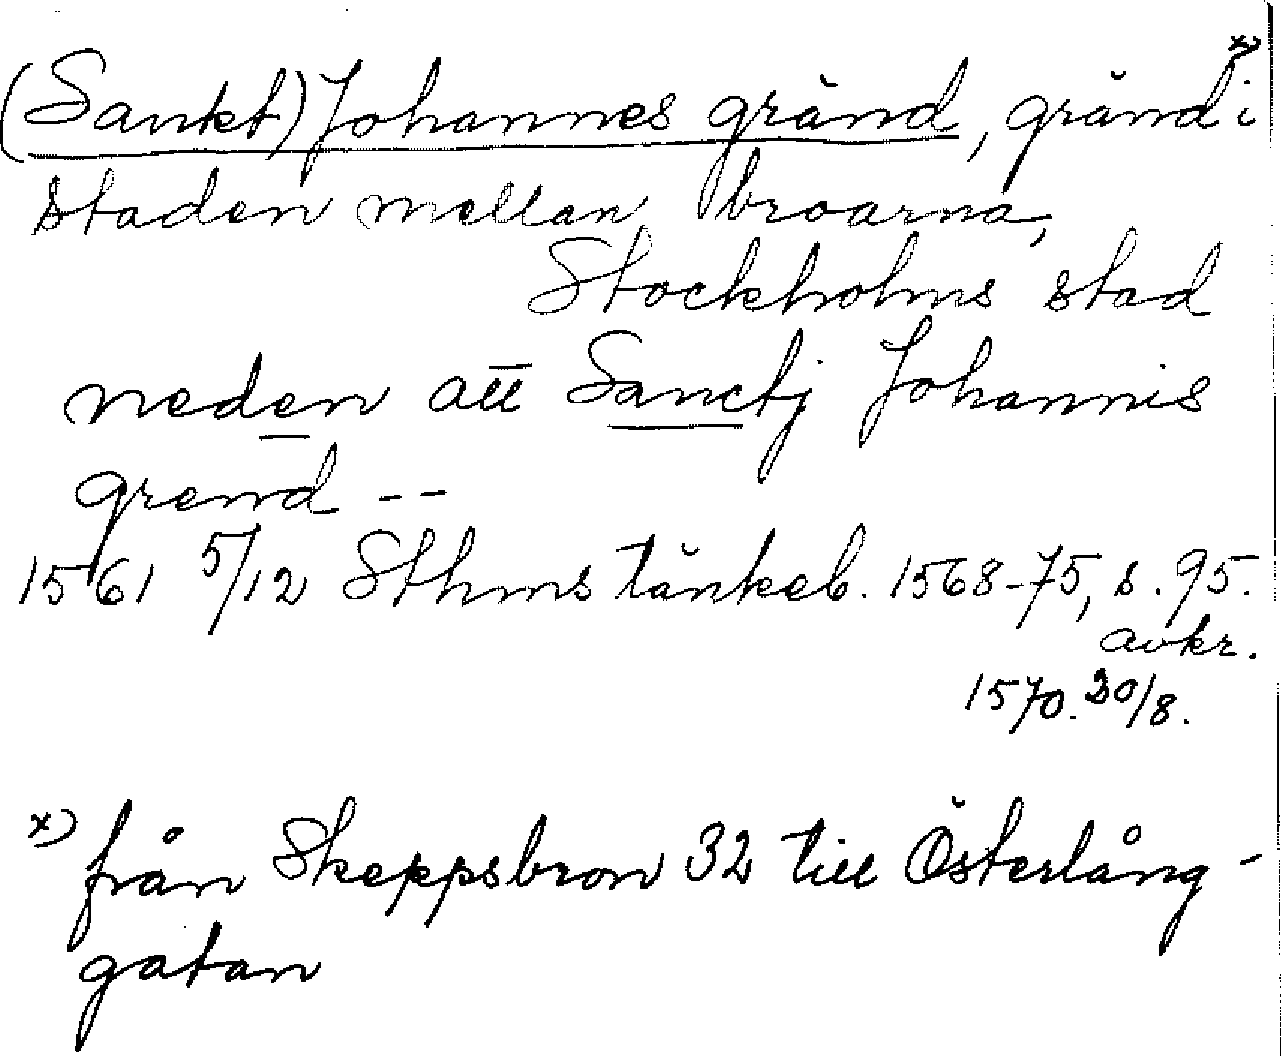 (Sankt) Johannes gränd, gränd x) i
staden mellan broarna,
Stockholms stad
neden att Sanctj Johannis
grend --
1561 5/12 Sthms tänkeb. 1568-75, s. 95.
avkr.
1570. 20/8.
x) från Skeppsbron 32 till Österlång-
gatan